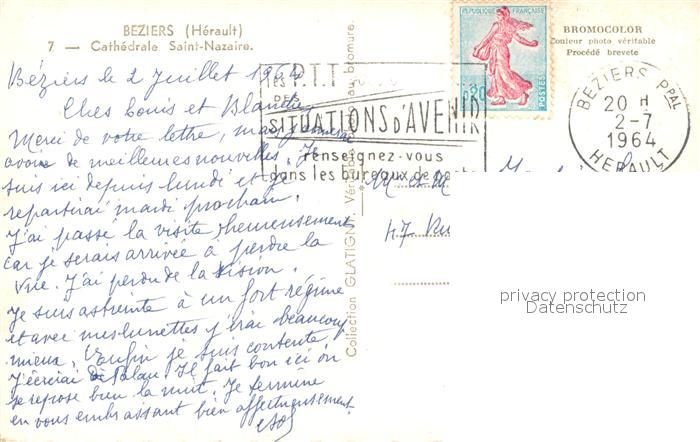 BEZIERS (Hérault)
7 — Cathédrale Saint-Nazaire.
BROMOCOLOR
Couleur photo véritable
Procédé breveté
REPUBLIQUE FRANÇAISE
0,20
POSTES
BEZIERS PPAL
20 H
2-7
1964
HERAULT
les P.T.T
DES
SITUATIONS D'AVENIR
renseignez-vous
dans les bureaux de
Collection GLATIGNY. au bromure.
Béziers le 2 Juillet 1964
Chers Louis et Blanche
Merci de votre lettre, mais
avons de meilleures nouvelles. Je
suis ici depuis lundi et je
repartirai mardi prochain.
J'ai passé la visite heureusement
car je serais arrivée à perdre la
vue. J'ai perdu de la vision.
Je suis astreinte à un fort régime
et avec mes lunettes j'irai beaucoup
mieux. Enfin je suis contente,
J'écrirai de Palau. Il fait bon ici on
se repose bien la nuit. Je termine
en vous embrassant bien affectueusement.
47 Ru
privacy protection
Datenschutz